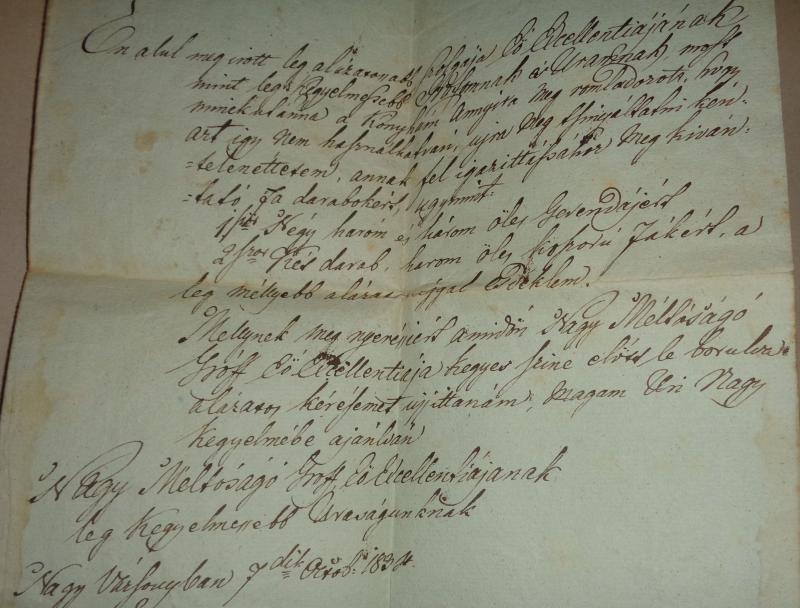 Én alul meg irott leg alázatosabb szolgája Eő Excellentiájának
mint leg Kegyelmessebb Grófomnak és Uramnak most
minekutánna a Konyhám Annyira meg romladozott, hogy
azt igy nem használhatván, ujra meg 'sindjáltatni kén=
=telenéttetem, annak fel igazittásához meg kiván=
=tató fa darabokért, ugymint
1ször Négy három és három öles Gerendájért
2szor Két darab, három öles Koporú fákért, a
leg méllyebb alázatossággal Esdeklem.
Mellynek meg nyeréséért amidőn Nagy Méltóságú
Gróff Eő Excellentiája kegyes szine előtt le borulva
alázatos kérésemet ujjittanám, magam Úri Nagy
Kegyelmébe ajánlván
Nagy Méltóságú Gróff Eő Excellentiájanak
leg Kegyelmesebb Uraságunknak
Nagy Vázsonyban 7dik Octob: 1834.